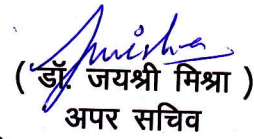 ( डॉ. जयश्री मिश्रा )
अपर सचिव